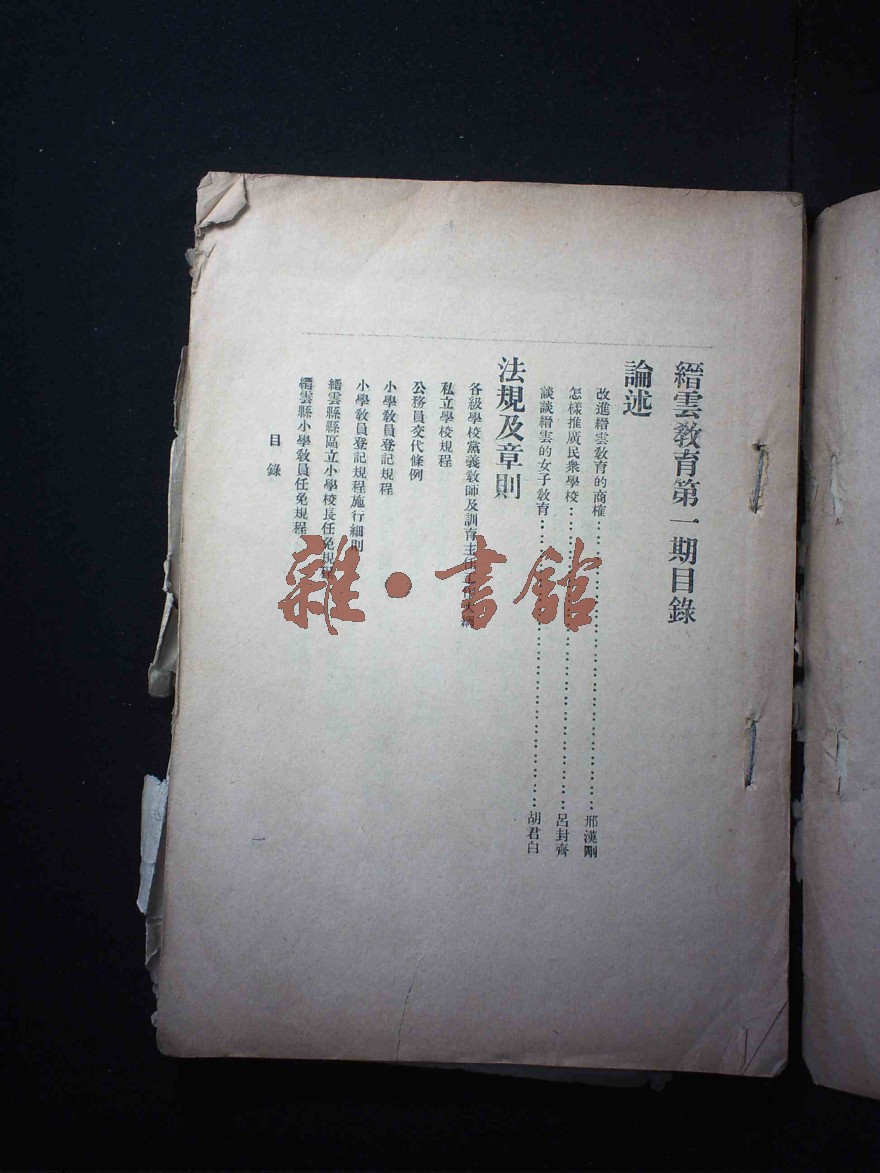 縉雲教育第一期目錄
論述
改進縉雲教育的商榷……邢漢剛
怎樣推廣民衆學校……呂封齊
談談縉雲的女子教育……胡君白
法規及章則
各級學校黨義教師及訓育主任工作大綱
私立學校規程
公務員交代條例
小學教員登記規程
小學教員登記規程施行細則
縉雲縣縣區立小學校長任免規程
縉雲縣小學教員任免規程
目錄
一
雜·書館